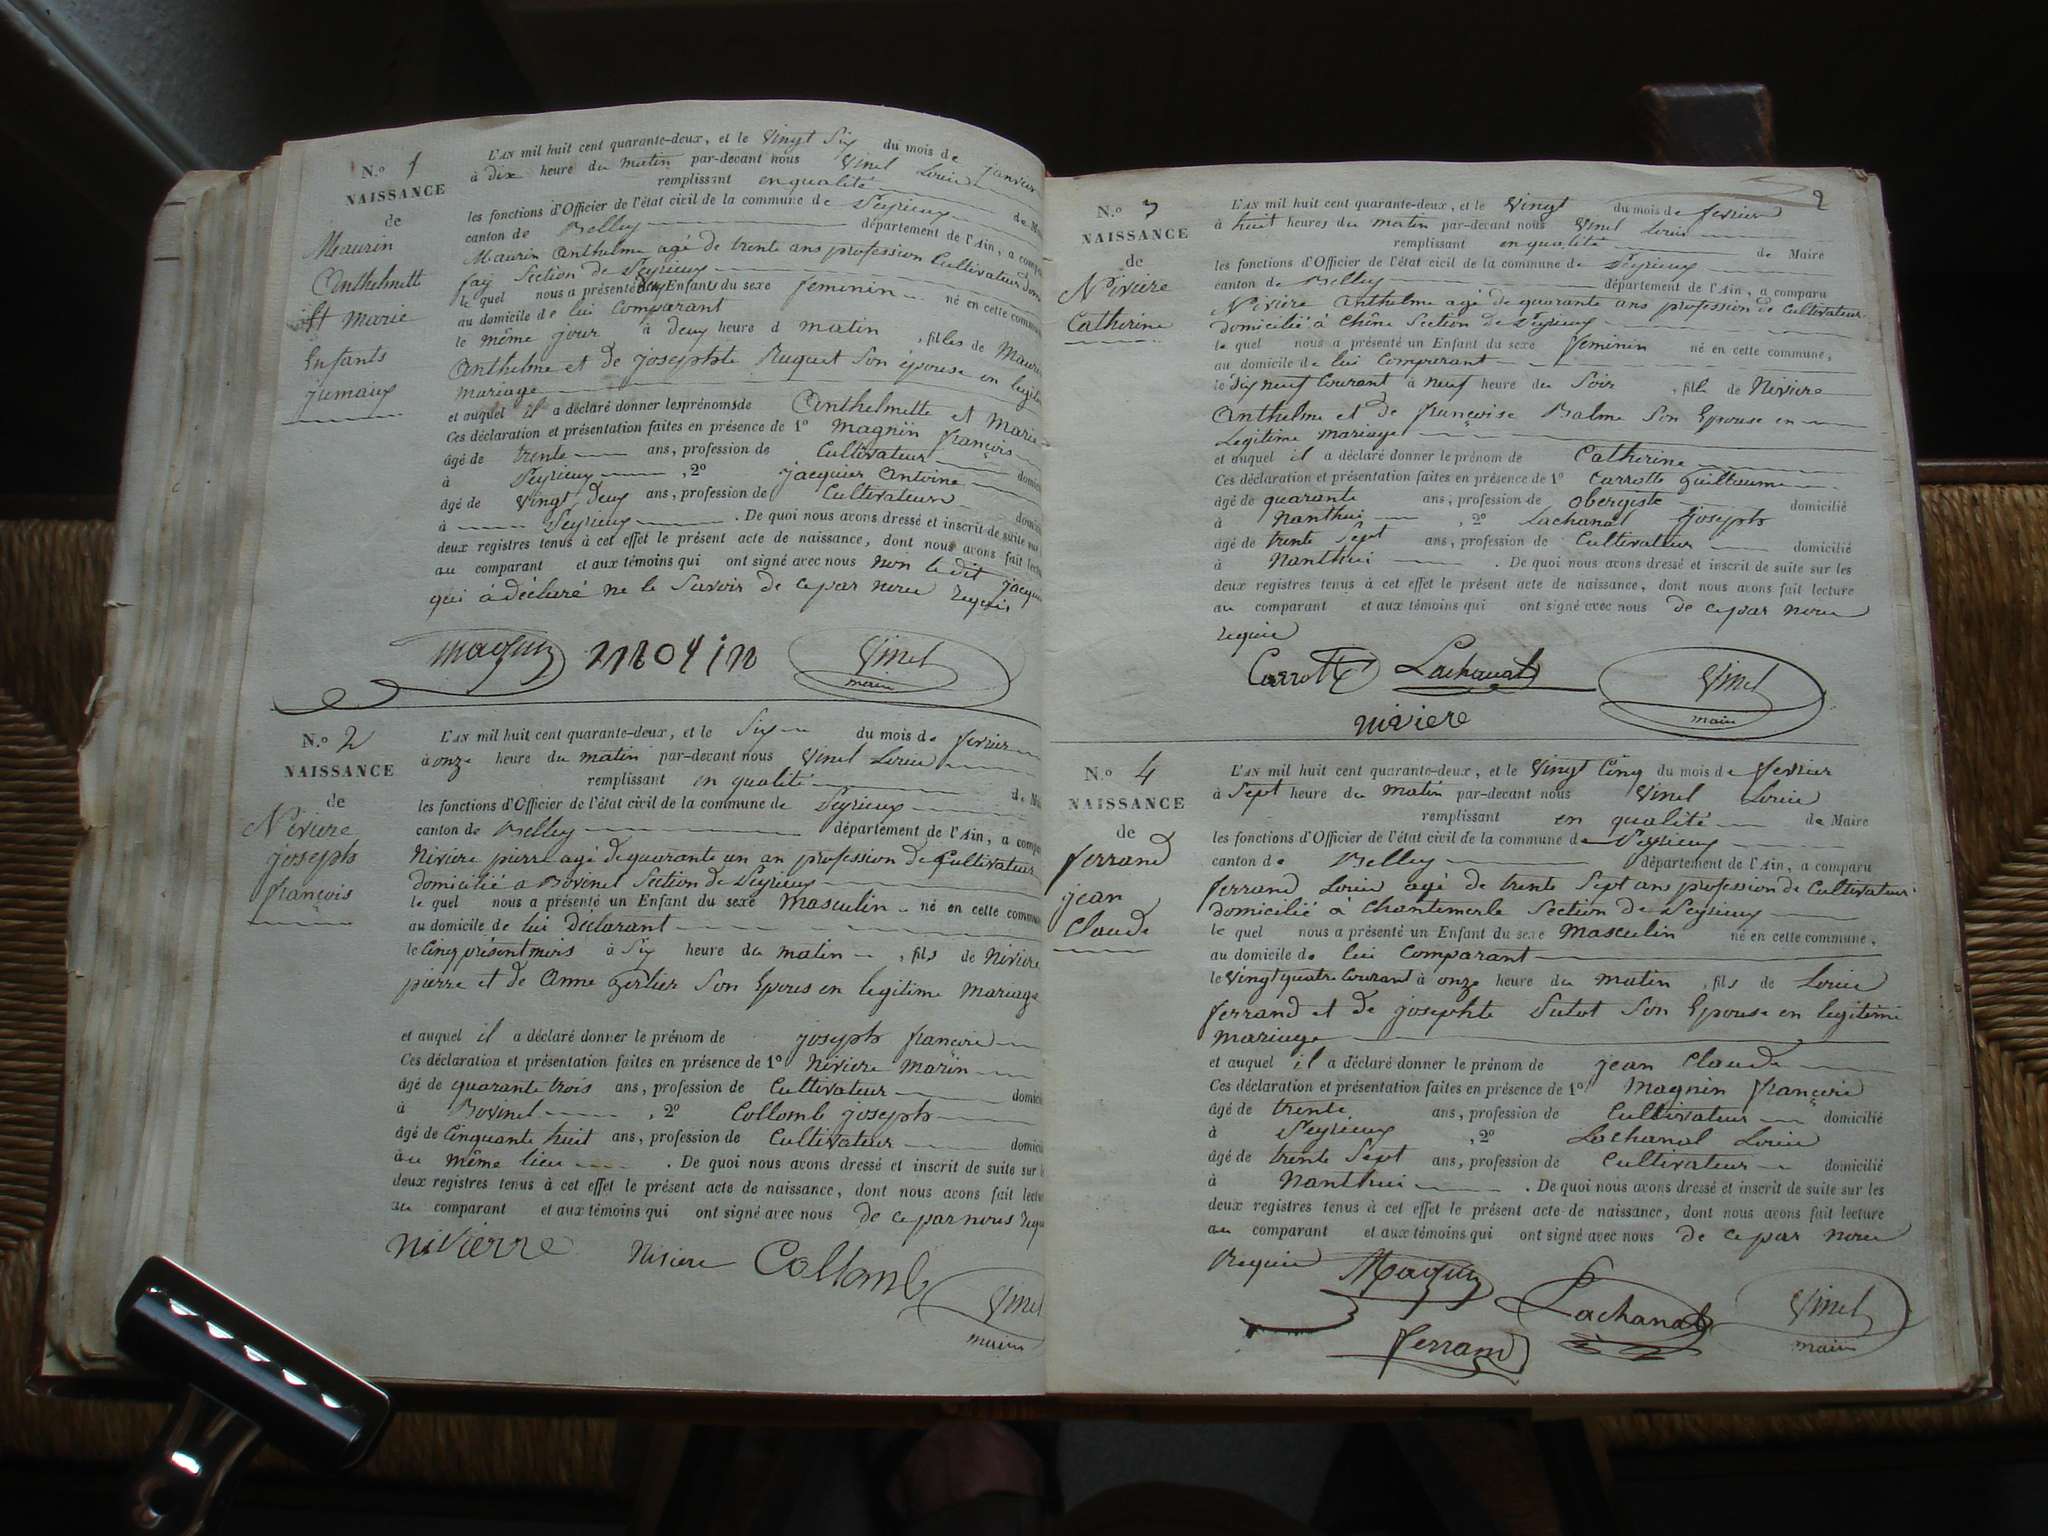 N.º 1
NAISSANCE
de
Maurin
Anthelmette
et Marie
Enfants
jumaux
L'AN mil huit cent quarante-deux, et le vingt Six du mois de janvier
à dix heure du matin par-devant nous Vinel Louis
remplissant en qualité de
les fonctions d'Officier de l'état civil de la commune de Peyrieux
canton de Belley département de l'Ain, a
Maurin Anthelme agé de trente ans profession Cultivateur
fay Section de Peyrieux
le quel nous a présenté deux Enfants du sexe feminin né en cette
au domicile de lui Comparant
le même jour à deux heure d matin , filles de
Anthelme et de josephte Ruquet Son épouse en
mariage
et auquel il a déclaré donner les prénoms de Anthelmette et Marie
Ces déclaration et présentation faites en présence de 1º Magnin françois
âgé de trente ans, profession de Cultivateur
à Peyrieux , 2º jacquier Antoine
âgé de vingt deux ans, profession de Cultivateur
à Peyrieux . De quoi nous avons dressé et inscrit de suite
deux registres tenus à cet effet le présent acte de naissance, dont nous avons fait
au comparant et aux témoins qui ont signé avec nous non le dit
qui à déclaré ne le Savoir de ce par nous requis
Magnin morin Vinel
maire
N.º 2
NAISSANCE
de
Niviere
joseph
françois
L'AN mil huit cent quarante-deux, et le Six du mois de fevrier
à onze heure du matin par-devant nous Vinel Louis
remplissant en qualité de
les fonctions d'Officier de l'état civil de la commune de Peyrieux
canton de Belley département de l'Ain, a
Niviere pierre agé de quarante un an profession de Cultivateur
domicilié a Bovinel Section de Peyrieux
le quel nous a présenté un Enfant du sexe Masculin né en cette
au domicile de lui déclarant
le Cinq présent mois à Six heure du matin , fils de Niviere
pierre et de Anne Gerlier Son Epous en legitime Mariage
et auquel il a déclaré donner le prénom de joseph françois
Ces déclaration et présentation faites en présence de 1º Niviere Marin
âgé de quarante trois ans, profession de Cultivateur
à Bovinel , 2º Collomb joseph
âgé de Cinquante huit ans, profession de Cultivateur
à u même lieu . De quoi nous avons dressé et inscrit de suite sur
deux registres tenus à cet effet le présent acte de naissance, dont nous avons fait
au comparant et aux témoins qui ont signé avec nous de ce par nous
nivierre Niviere Collomb Vinel
maire
2
N.º 3
NAISSANCE
de
Niviere
Catherine
L'AN mil huit cent quarante-deux, et le vingt du mois de fevrier
à huit heures du matin par-devant nous Vinel Louis
remplissant en qualité de Maire
les fonctions d'Officier de l'état civil de la commune de Peyrieux
canton de Belley département de l'Ain, a comparu
Niviere Anthelme agé de quarante ans profession de Cultivateur
domicilié à Chêne Section de Peyrieux
le quel nous a présenté un Enfant du sexe feminin né en cette commune,
au domicile de lui Comparant
le dix neuf Courant à neuf heure du Soir , fille de Niviere
Anthelme et de françoise Balme Son Epouse en
Legitime mariage
et auquel il a déclaré donner le prénom de Catherine
Ces déclaration et présentation faites en présence de 1º Carrotte guillaume
âgé de quarante ans, profession de obergiste domicilié
à Nanthui , 2º Lachanal joseph
âgé de trente Sept ans, profession de Cultivateur domicilié
à Nanthui . De quoi nous avons dressé et inscrit de suite sur les
deux registres tenus à cet effet le présent acte de naissance, dont nous avons fait lecture
au comparant et aux témoins qui ont signé avec nous de ce par nous
requis
Carrotte Lachanal Vinel
niviere maire
N.º 4
NAISSANCE
de
ferrand
jean
Claude
L'AN mil huit cent quarante-deux, et le vingt Cinq du mois de fevrier
à Sept heure du matin par-devant nous Vinel Louis
remplissant en qualité de Maire
les fonctions d'Officier de l'état civil de la commune de Peyrieux
canton de Belley département de l'Ain, a comparu
ferrand Louis agé de trente Sept ans profession de Cultivateur
domicilié à Chantemerle Section de Peyrieux
le quel nous a présenté un Enfant du sexe Masculin né en cette commune,
au domicile de lui Comparant
le vingt quatre Courant à onze heure du matin , fils de Louis
ferrand et de josephte Sutot Son Epouse en legitime
mariage
et auquel il a déclaré donner le prénom de jean Claude
Ces déclaration et présentation faites en présence de 1º Magnin françois
âgé de trente ans, profession de Cultivateur domicilié
à Peyrieux , 2º Lachanal Louis
âgé de trente Sept ans, profession de Cultivateur domicilié
à Nanthui . De quoi nous avons dressé et inscrit de suite sur les
deux registres tenus à cet effet le présent acte de naissance, dont nous avons fait lecture
au comparant et aux témoins qui ont signé avec nous de ce par nous
Requis Magnin Lachanal Vinel
ferrand maire